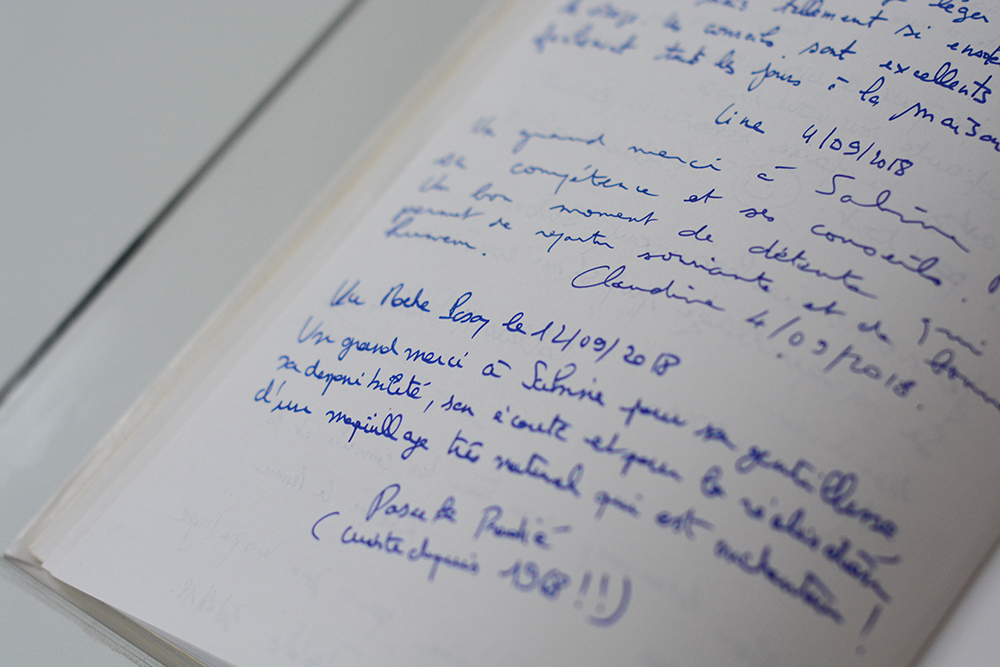 léger
tellement si
le conseils sont excellents
tout les jours à la maison
Line 4/09/2018
Un grand merci à Sabine
sa compétence et ses conseils.
Un bon moment de détente qui
permet de repartir souriante et de bonne
humeur.
Claudine 4/09/2018.
La Roche Posay le 12/09/2018
Un grand merci à Sabine pour sa gentillesse
sa disponibilité, son écoute et pour la réalisation
d'un maquillage très naturel qui est
!
(curiste depuis !!!)